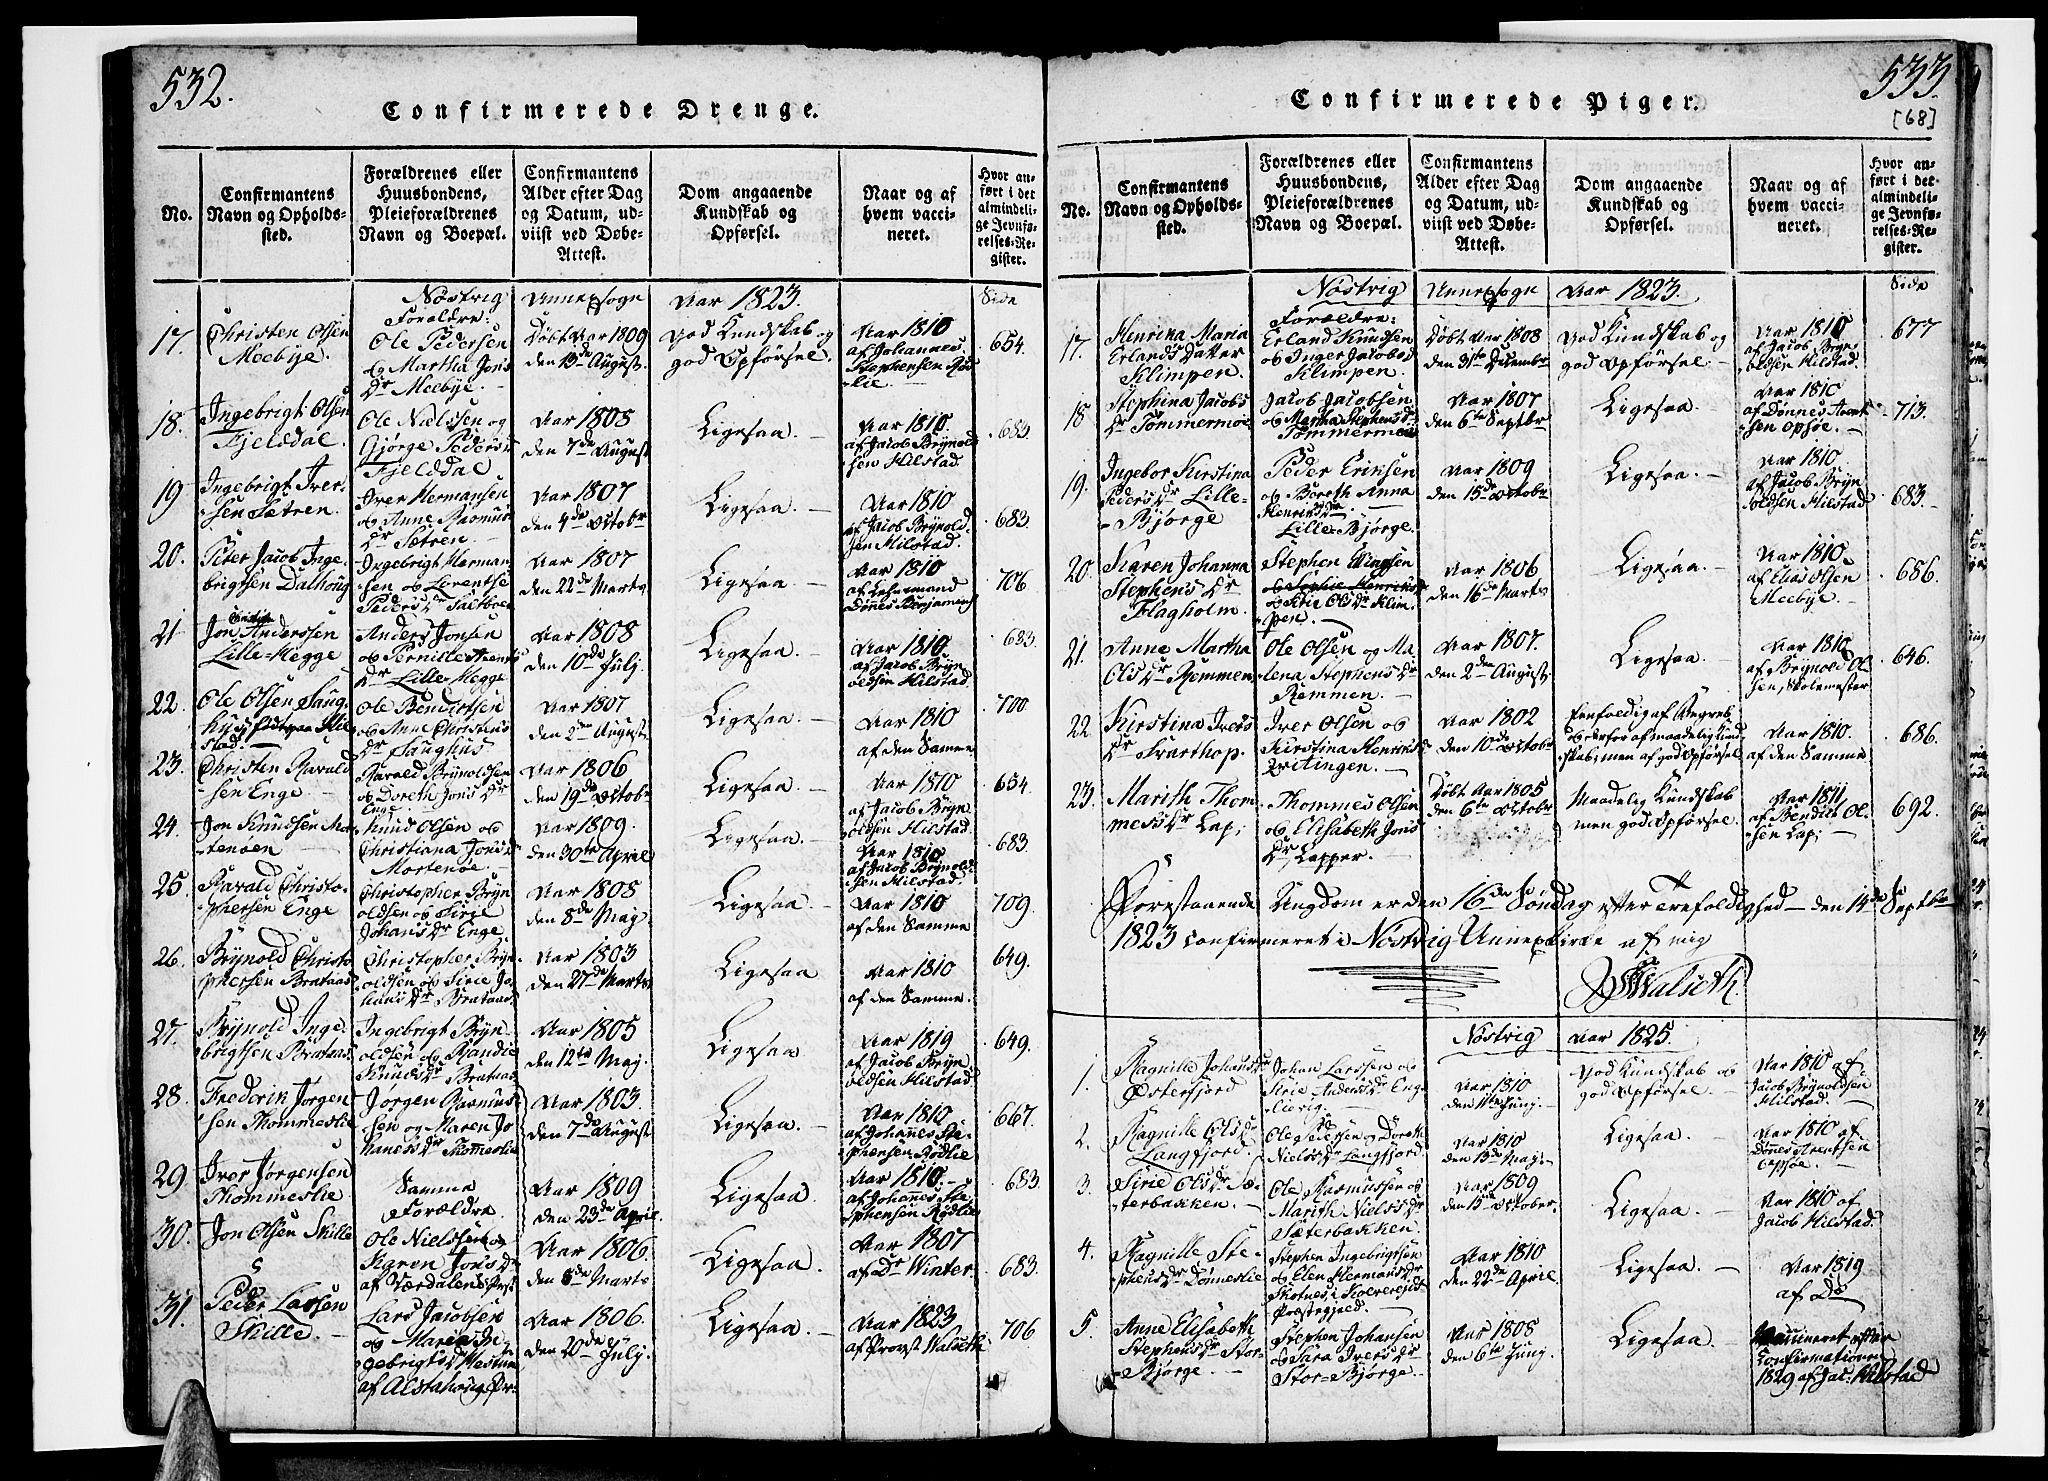 532.
Confirmerede Drenge.
No.
Confirmantens
Navn og Opholds-
sted.
Forældrenes eller
Huusbondens,
Pleieforældrenes
Navn og Boepæl.
Confirmantens
Alder efter Dag
og Datum, ud-
viist ved Døbe-
Attest.
Dom angaaende
Kundskab og
Opførsel.
Naar og af
hvem vacci-
neret.
Hvor an-
ført i det
almindeli-
ge Jevnfø-
relses-Re-
gister.
Nöstrig Annexsogn Aar 1823. Side
17. Christen Olsen
Meebye.
Forældre:
Ole Pedersen
og Martha Jons
Dr Meebye.
Döbt Aar 1809
den 13de August.
God Kundskab og
god Opförsel.
Aar 1810
af Johannes
Stephensen Röd-
lie.
654.
18. Ingebrigt Olsen
Fjeldal.
Ole Nielssen og
Gjørge Peders Dr
Fjeldal
Aar 1808
den 7de August
Ligesaa.
Aar 1810
af Jacob Brÿnold
sen Hilstad.
683.
19 Ingebrigt Iver-
sen Sætren.
Iver Hermansen
og Anne Rasmus
Dr Sætren.
Aar 1807
den 4de Octobr
Ligesaa.
Aar 1810
af Jacob Brÿnold-
sen Hilstad.
683.
20. Peter Jacob Inge-
brigtsen Dalhoug
Ingebrigt Herman-
sen og Lorentse
Peders Dr
Aar 1807
den 22de Marts
Ligesaa.
Aar 1810
af Lehnsmand
Dønes Benjamins
706
21 Jon Anderssen
Lille-Hegge
Anders Jonsen
og Pernille Arents
Dr Lille Hegge
Aar 1808
den 10de Julj.
Ligesaa.
Aar 1810
af Jacob Brÿn-
oldsen Hilstad.
683.
22. Ole Olsen Saug-
huus
Hil-
stad.
Ole Bendixtsen
og Anne Christens
Dr Saughus
Aar 1807
den 2den August.
Ligesaa.
Aar 1810
af den Samme
700.
23. Christen Ravald
sen Enge.
Ravald Brÿnoldsen
og Doreth Jons Dr
Enge
Aar 1806
den 19de Octobr
Ligesaa.
Aar 1810
af Jacob Brÿn
oldsen Hilstad.
654.
24. Jon Knudsen Mor-
tenøen
Knud Olsen og
Christiana Jons Dr
Mortenøe
Aar 1809.
den 30te April
Ligesaa.
Aar 1810
af Jacob Brÿnold-
sen Hilstad.
683.
25 Ravald Christo-
phersen Enge
Christopher Brÿn
oldsen og Sirie
Johans Dr Enge
Aar 1808
den 8de Maj.
Ligesaa.
Aar 1810
af den Samme
709.
26. Brÿnold Christo
phersen Brataas
Christopher Brÿn-
oldsen og Sirie Jo-
hans Dr Brataas
Aar 1803
den 27de Marts
Ligesaa
Aar 1810
af den Samme.
649.
27. Brÿnold Inge-
brigtsen Brataas
Ingebrigt Brÿn-
oldsen og Randie
Knuds Dr Brataas
Aar 1805
den 12te Maj.
Ligesaa
Aar 1819
af Jacob Brÿn
oldsen Hilstad
649.
28. Frederik Jörgen
sen Thommeslie
Jörgen Rasmus-
sen og Maren Jo
hanes Dr Thommeslie
Aar 1803.
den 7de August
Ligesaa
Aar 1810
af Johanes Ste-
phensen Rödlie
667.
29 Iver Jörgensen
Thommeslie
Samme
Forældre.
Aar 1809
den 23de April.
Ligesaa
Aar 1810.
af Johanes Ste
phensen Rödlie
683.
30. Jon Olsen Skille
Ole Nielssen og
Karen Jons Dr
af Værdalens Præst
Aar 1806.
den 8de Marts
Ligesaa.
Aar 1807
af Dr Winter.
683.
31. Peder Larsen
Skille.
Lars Jacobsen
og Maria In-
gebrigts Dr
af Alstahoug Pr.
Aar 1806.
den 20de Julj.
Ligesaa.
Aar 1823
af Provst Walseth
706
533
[68]
Confirmerede Piger.
No.
Confirmantens
Navn og Opholds-
sted.
Forældrenes eller
Huusbondens,
Pleieforældrenes
Navn og Boepæl.
Confirmantens
Alder efter Dag
og Datum, ud-
viist ved Døbe-
Attest.
Dom angaaende
Kundskab og
Opførsel.
Naar og af
hvem vacci-
neret.
Hvor an-
ført i det
almindeli-
ge Jevnfø-
relses-Re-
gister.
Nöstrig Annexsogn Aar 1823. Side
17. Henrika Maria
Erlands Datter
Klimpen.
Forældre:
Erland Knudsen
og Inger Jacobs Dr
Klimpen.
Döbt Aar 1808
den 31te Decembr
God Kundskab og
god Opförsel.
Aar 1810
af Jacob Brÿn-
oldsen Hilstad.
677
18 Stephina Jacobs
Dr Tömmermoe
Jacob Jacobsen
og Martha Stephens Dr
Tömmermoe
Aar 1807
den 6te Septbr
Ligesaa.
Aar 1810
af Dønnes Arent-
sen Opsøe.
713.
19. Ingebor Kirstina
Peders Dr Lille-
Bjørge
Peder Eriksen
og Bereth Anna
Henrichs Dr
Lille-Bjørge.
Aar 1809
den 15de Octobr
Ligesaa.
Aar 1810
af Jacob Brÿn
oldsen Hilstad
683.
20. Karen Johanna
Stephens Dr
Flagholm.
Stephen
og Sophie Henriks Dr
og Sirie Ols Dr Klim
pen.
Aar 1806
den 16de Marts
Ligesaa
Aar 1810
af Elias Olsen
Meebye.
686.
21. Anne Martha
Ols Dr Remmen
Ole Olsen og Ma-
lena Stephens Dr
Remmen.
Aar 1807.
den 2den August
Ligesaa.
Aar 1810
af Brÿnold Ol-
sen, Skolemester
646.
22 Kirstina Ivers
Dr Svarthop.
Iver Olsen og
Kirstina Henriks Dr
Qvitingen.
Aar 1802
den 10de Octobr
Eenfoldig af Begreb
og derfor af maadelig Kund
skab; men af god Opförsel
Aar 1810.
af den Samme
686.
23. Marith Thom
mes Dr Lap;
Thommes Olsen
og Elisabeth Jons
Dr, Lapper.
Döbt Aar 1805
den 6te Octobr
Maadelig Kundskab
men god Opförsel.
Aar 1811
af Bendict Ol-
sen Lap;
692.
Forestaaende Ungdom er den 16de Söndag efter Trefoldighed - den 14de Septbr
1823 confirmeret i Nöstrig Annexkirke af mig
Walseth.
Nöstrig Aar 1825.
1. Ragnille Johans Dr
Østerfjord
Johan Larssen og
Sirie Anders Dr Eng-
Aar 1810
den 11te Junj.
God Kundskab og
god Opförsel.
Aar 1810 af
Jacob Brÿnoldsen
Hilstad.
2. Ragnille Ols Dr
Langfjord.
Ole og Dorethe
Niels Dr Langfjord
Aar 1810
den 13de Maj.
Ligesaa
Aar 1810 af
Dønes Arentsen
Opsøe.
3. Sirie Ols Dr Sæ-
terbakken.
Ole Rasmussen og
Marith Niels Dr
Sæterbakken
Aar 1809
den 15de October.
Ligesaa
Aar 1810 af
Jacob Hilstad.
4. Ragnille Ste-
phens Dr Dönneslie
Stephen Ingebrigtsen
og Elen Hermans Dr
Skotnes i Kolvereids
Præstegjeld.
Aar 1810
den 22de April.
Ligesaa.
Aar 1819
af Do
5. Anne Elisabeth
Stephens Dr Stor-
Bjørge.
Stephen Johansen
og Sara Ivers Dr
Stor-Bjørge.
Aar 1808
den 6te Junj.
Ligesaa.
Vaccineret efter
Confirmationen
1829 af Jac: Hilstad